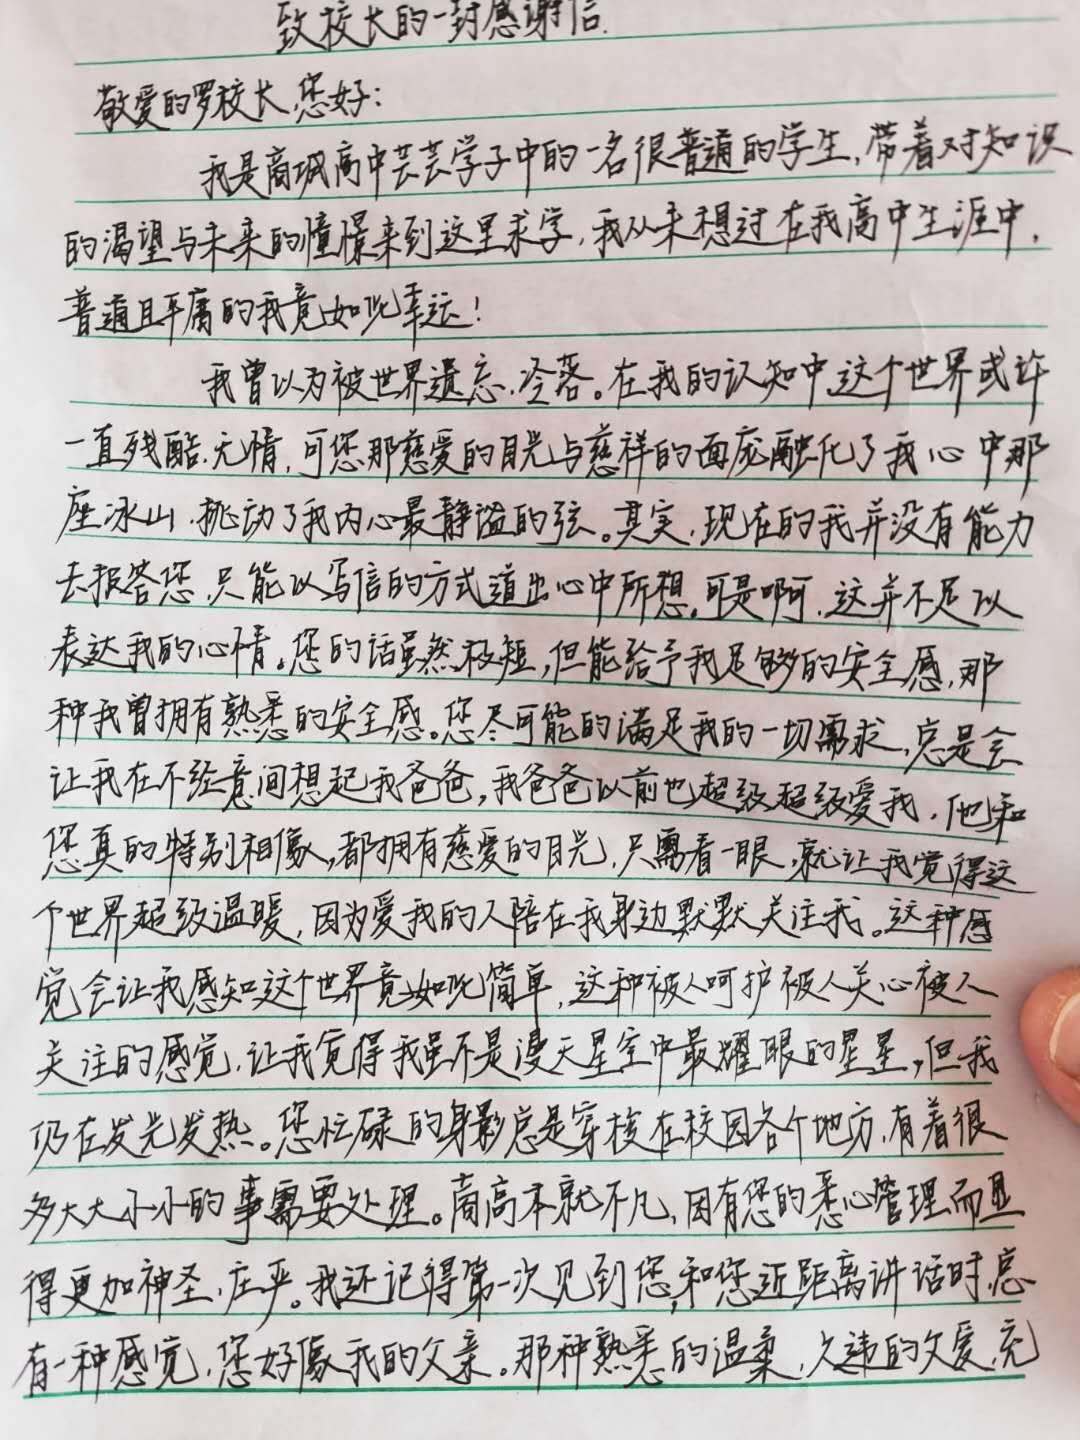 致校长的一封感谢信.
敬爱的罗校长,您好:
我是商城高中芸芸学子中的一名很普通的学生,带着对知识
的渴望与未来的憧憬来到这里求学,我从未想过在我高中生涯中,
普通且平庸的我竟如此幸运!
我曾以为被世界遗忘、冷落。在我的认知中这个世界或许
一直残酷、无情,可您那慈爱的目光与慈祥的面庞融化了我心中那
座冰山,挑动了我内心最静谧的弦。其实,现在的我并没有能力
去报答您,只能以写信的方式道出心中所想。可是啊,这并不足以
表达我的心情。您的话虽然极短,但能给予我足够的安全感,那
种我曾拥有熟悉的安全感。您尽可能的满足我的一切需求,总是会
让我在不经意间想起我爸爸,我爸爸以前也超级超级爱我,他和
您真的特别相像,都拥有慈爱的目光,只需看一眼,就让我觉得这
个世界超级温暖,因为爱我的人陪在我身边默默关注我。这种感
觉会让我感知这个世界竟如此简单,这种被人呵护被人关心被人
关注的感觉,让我觉得我虽不是漫天星空中最耀眼的星星,但我
仍在发光发热。您忙碌的身影总是穿梭在校园各个地方,有着很
多大大小小的事需要处理。商高本就不凡,因有您的悉心管理而显
得更加神圣、庄严。我还记得第一次见到您,和您近距离讲话时,总
有一种感觉,您好像我的父亲。那种熟悉的温柔,久违的父爱,充